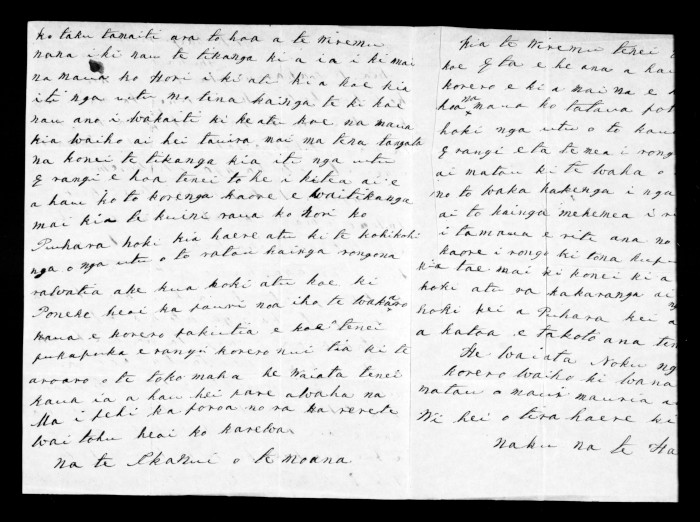 ko taku tamaiti ara to hoa a te Wiremu
nana i ki nau te tikanga ki a ia i ki mai
na maua ko Hori i ki atu ki a koe kia
iti nga utu mo tena kainga te ki koe
nau ano i wakaiti ki keatu koe na maua
kia waiho ai hei tauira mai ma tena tangata
na konei te tikanga kia iti nga utu
E rangi e hoa tenei to he i kitea ai e
a hau ko to korenga kaore e waitikanga
mai kia te kuini raua ko Hori ko
Puhara hoki kia haere atu ki te kohikohi
nga o nga utu o to ratou kainga rongona
rawatia ake kua hoki atu koe ki
Poneke heoi ka pouri noa iho te wakaaro
maua e korero pakutia e koe tenei
pukapuka e rangi korero nui tia ki te
aroaro o te toko maha he Waiata tenei
kaua ia a hau hei pare awaha na
Ma i pehi ka poroa no ra ka rerete
wai tohu heoi ko karewa
na te Ika nui o te moana
kia te Wiremu tenei
koe E ta e he ana a hau
korero e ki a mai na e
hoa na maua ko tatava
hoki nga utu o to kau
E rangi e ta te mea i rong
ai matou ki te waha o
no to waka hakenga i nga
ai to kainga mehemea i
i ta maua e rite ana no
kaore i rongo ki tona kupu
kia tae mai ki konei ki a
hoki atu ra kakaranga ai
hoki kei a Puhara kei a
a katoa e takoto ana ten
He waiata Noku ng
korero waiho ki wana
matau o maui mauria a
Wi hei o tira haere ki
naku na te Ha